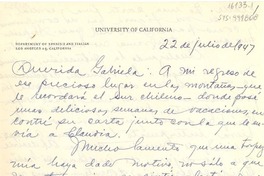 16133-1
UNIVERSITY OF CALIFORNIA
DEPARTMENT OF SPANISH AND ITALIAN
LOS ANGELES 24, CALIFORNIA
22 de julio de 1947
Querida Gabriela: A mi regreso de
ese precioso lugar en las montañas, que
le recordará el sur chileno - donde pasé
unas deliciosas semanas de vacaciones, en-
contré su carta junto con la que en-
vía a Claudia.
Mucho lamento que una torpe
mía haya dado motivo, no sólo a que